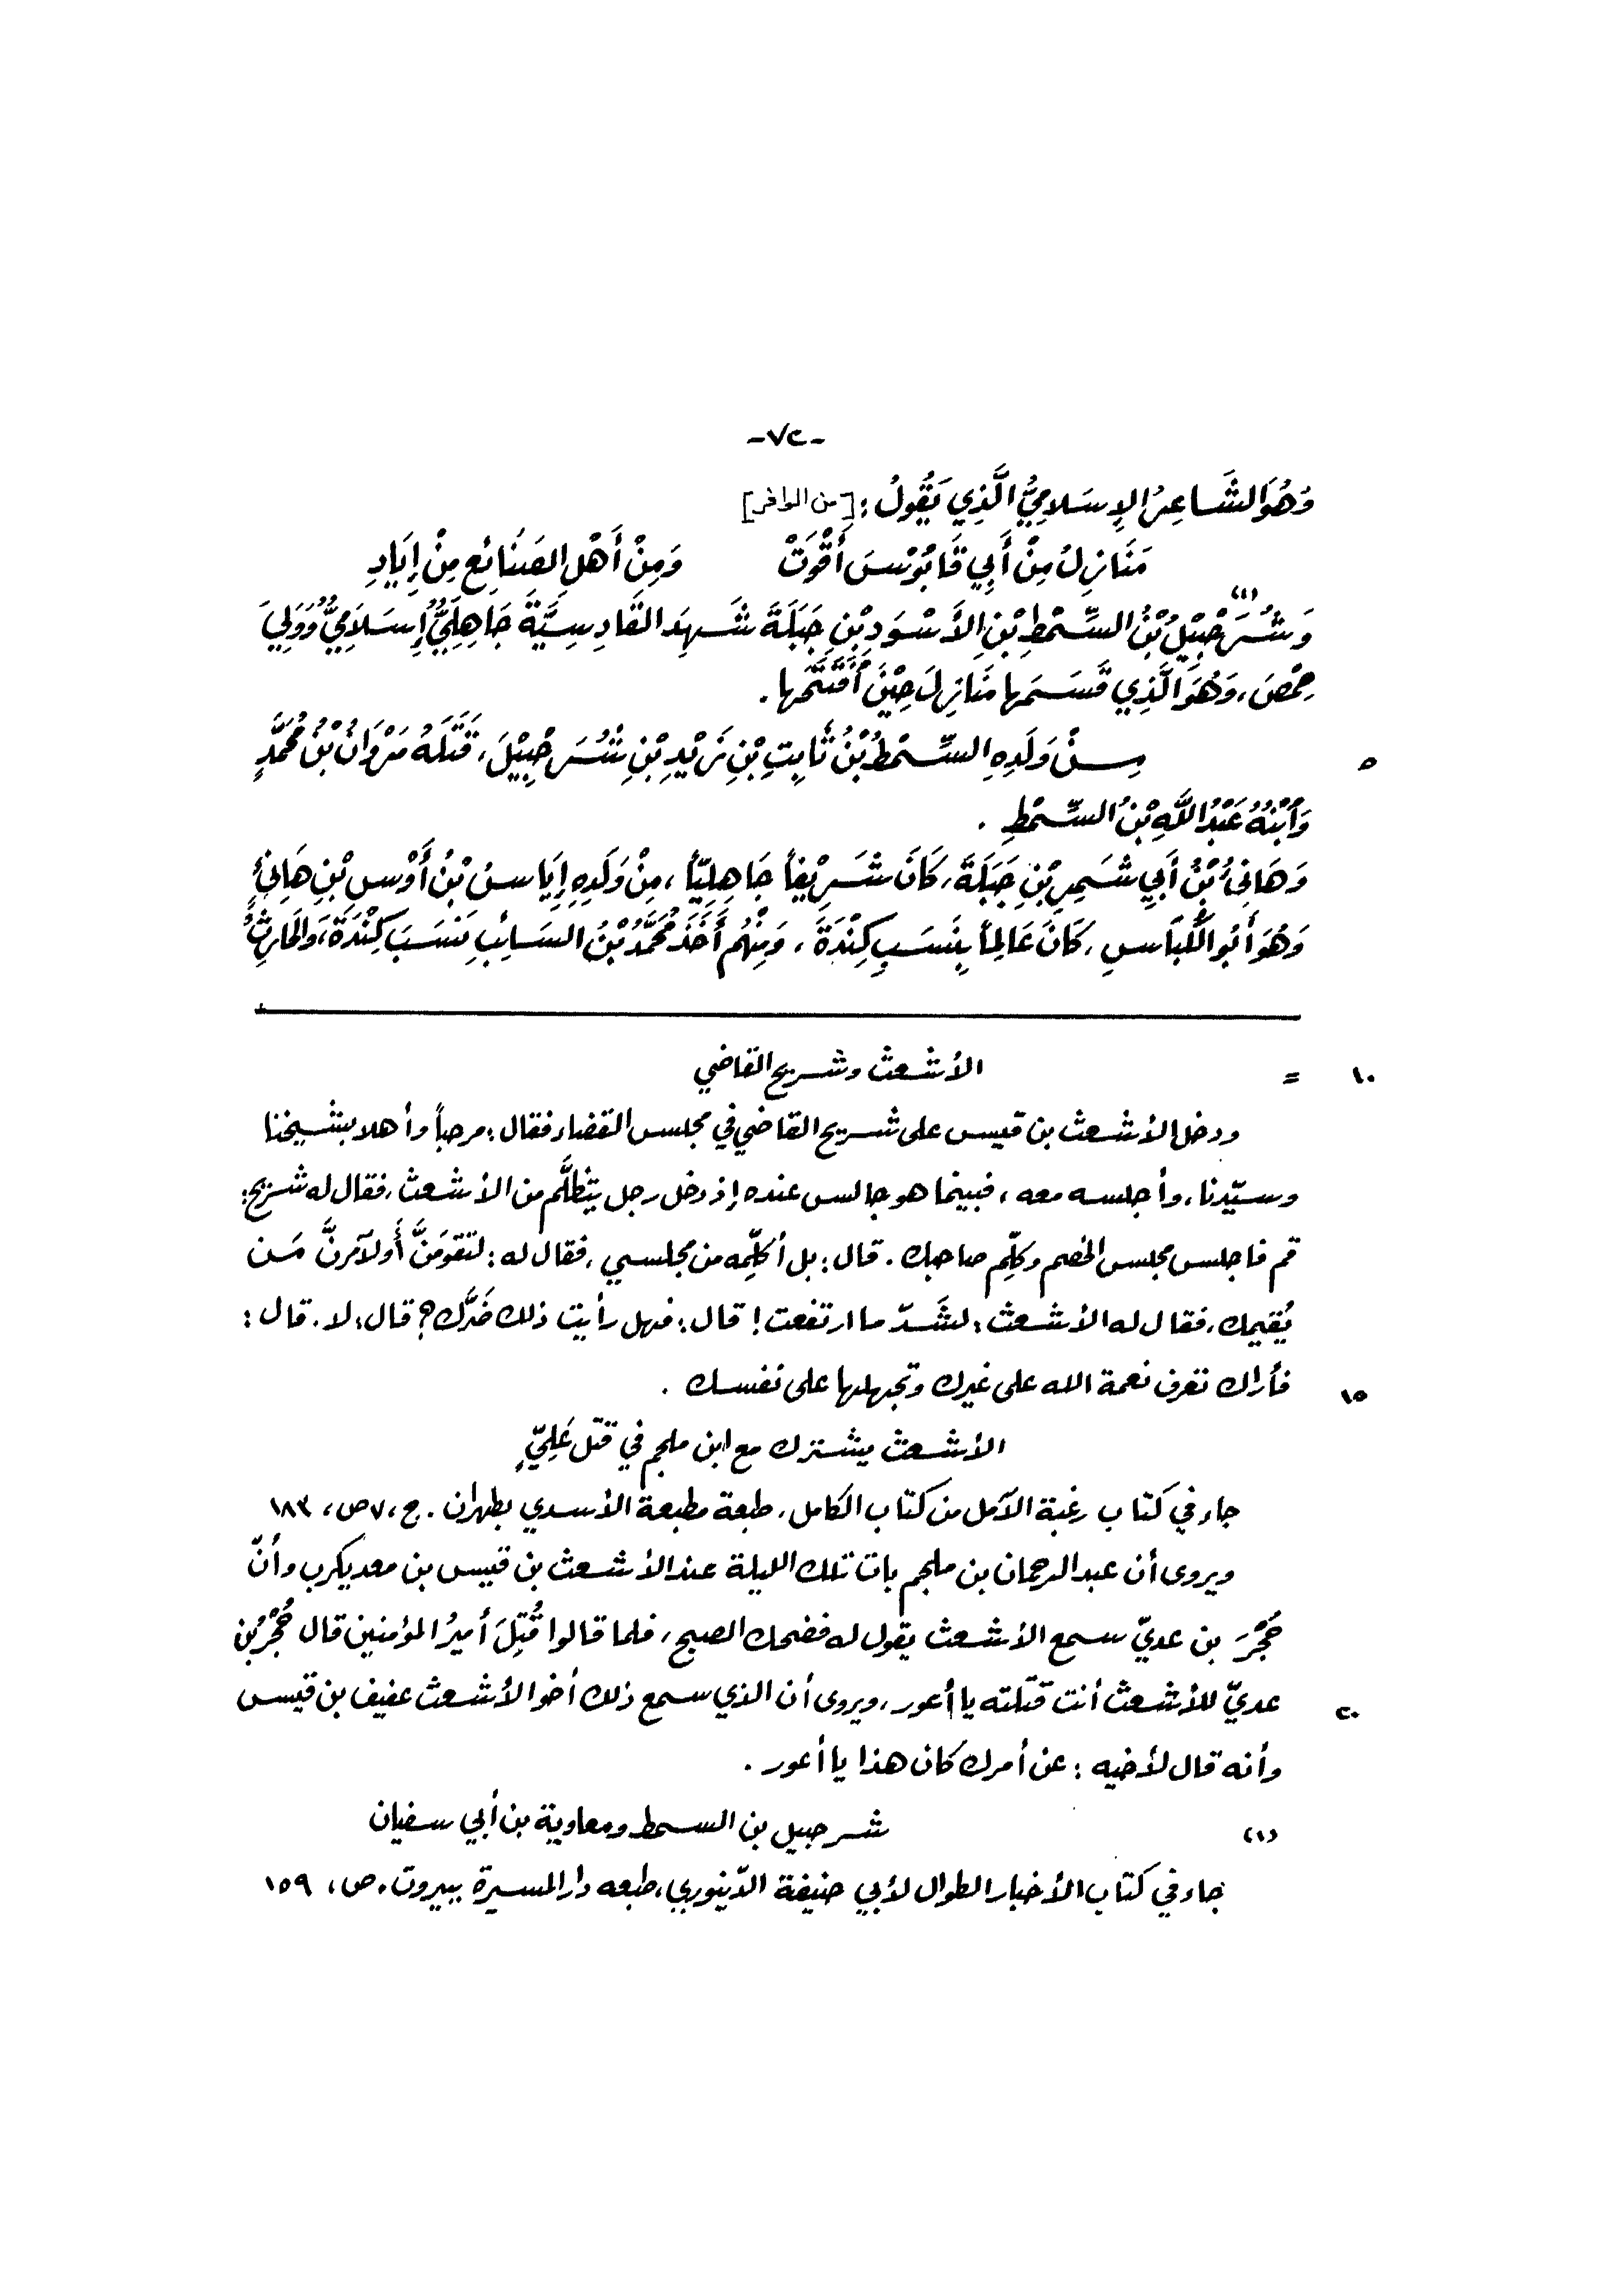 -٧٢-
وَهُوَ الشَّاعِرُ الإِسَلامِيُّ الَّذِي يَقُولُ: [من الوافر]
مَنَازِلُ مِنْ أَبِي قَابُوْسَ أَقْوَتْ وَمِنْ أَهْلِ الصَنَائِعِ مِنْ إِيَادِ
وَشُرَحْبِيْلُ(١) بْنُ السِّمْطِ بْنِ الأَسْوَدِ بْنِ جَبَلَةَ شَهِدَ القَادِسِيَّةَ جَاهِلِيٌّ إِسَلَامِيٌّ وَوَلِيَ
حِمْصَ، وَهُوَ الَّذِي قَسَمَها مَنَازِلَ حِيْنَ اُفْتَتَحَها.
٥ مِنْ وَلَدِهِ السِّمْطُ بْنُ ثَابِتِ بْنِ يَزِيْدِ بْنِ شُرَحْبِيْلَ، قَتَلَهُ مَرْوَانُ بْنُ مُحَمَّدٍ
وَاُبْنُهُ عَبْدُ اللَّهِ بْنُ السِّمْطِ.
وَهَانِىُٔ بْنُ أَبِي شَمِرِ بْنِ جَبَلَةَ، كَانَ شَرِيْفاً جَاهِلِيّاً، مِنْ وَلَدِهِ إِيَاسُ بْنُ أَوْسِ بْنِ هَانِئٍ
وَهُوَ أَبُو الكُبَاسِ، كَانَ عَالِماً بِنَسَبِ كِنْدَةَ، وَمِنْهُم أَخَذَ مُحَمَّدُ بْنُ السَائِبِ نَسَبَ كِنْدَةَ، وَالحَارِثُ
١٠ = الأشعث وشريح القاضي
ودخل الأشعث بن قيس على شريح القاضي في مجلس القضاء فقال: مرحباً وأهلا بشيخنا
وسيّدنا، وأجلسه معه، فبينما هو جالس عنده إذ دخل رجل يتظلَّم من الأشعث، فقال له شريح:
قم فاجلس مجلس الخصم وكلِّم صاحبك. قال: بل أكلِّمه من مجلسي، فقال له: لتقومَنَّ أَو لآمرنَّ مَن
يُقيمك، فقال له الأشعث: لشَدّ ما ارتفعت! قال: فهل رأيت ذلك ضَرَّك؟ قال: لا. قال:
١٥ فأراك تعرف نعمة الله على غيرك وتجهلها على نفسك.
الأشعث يشترك مع ابن ملجم في قتل عَلِيّ
جاء في كتاب رغبة الآمل من كتاب الكامل، طبعة مطبعة الأسدي بطهران. ج، ٧ ص، ١٨٣
ويروى أن عبد الرحمان بن ملجم بات تلك الليلة عند الأشعث بن قيس بن معديكرب وأنّ
حُجْرَ بن عديّ سمع الأشعث يقول له فضحك الصبح، فلما قالوا قُتِلَ أميرُ المؤمنين قال حُجْرُ بن
٢٠ عديّ للأشعث أنت قتلته يا أعور، ويروى أن الذي سمع ذلك أخو الأشعث عفيف بن قيس
وأنه قال لأخيه: عن أمرك كان هذا يا أعور.
(١) شرحبيل بن السمط ومعاوية بن أبي سفيان
جاء في كتاب الأخبار الطوال لأبي حنيفة الدّينوري، طبعه دار المسيرة ببيروت. ص، ١٥٩